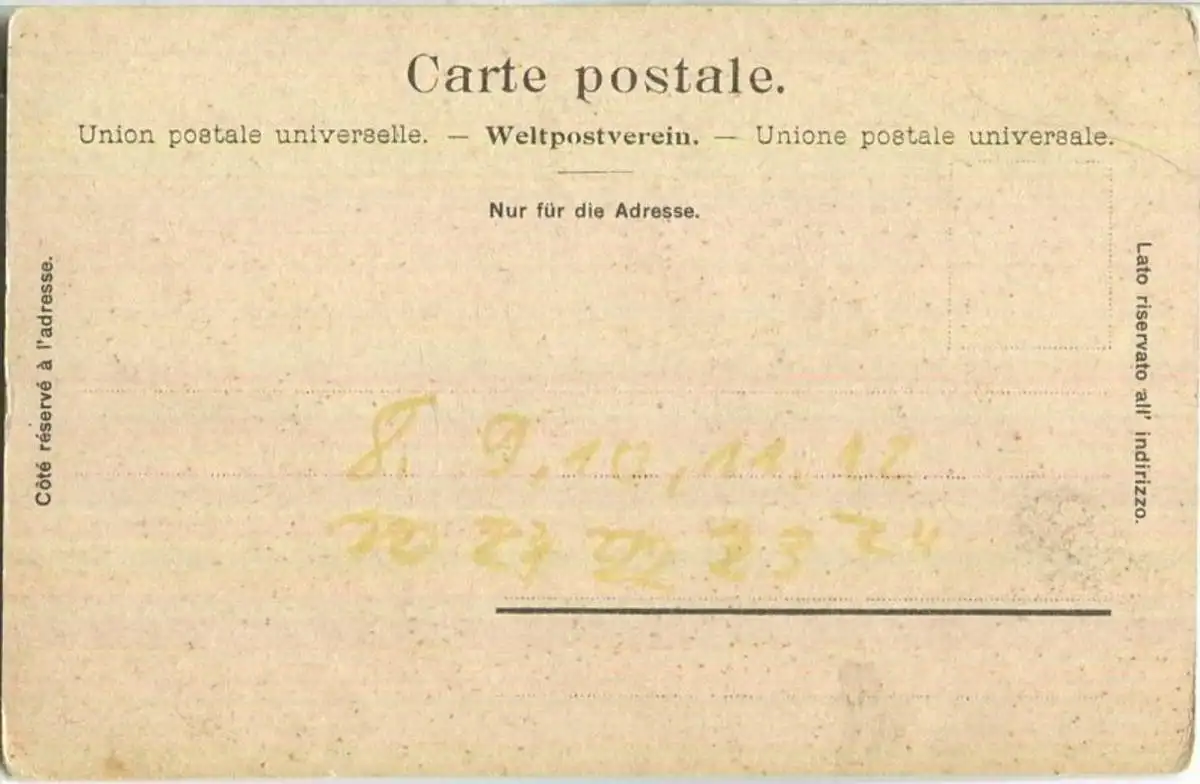 Carte postale.
Union postale universelle. — Weltpostverein. — Unione postale universale.
Nur für die Adresse.
Côté réservé à l'adresse.
Lato riservato all' indirizzo.
8. 9. 10, 11. 12
20 21 22 23 24